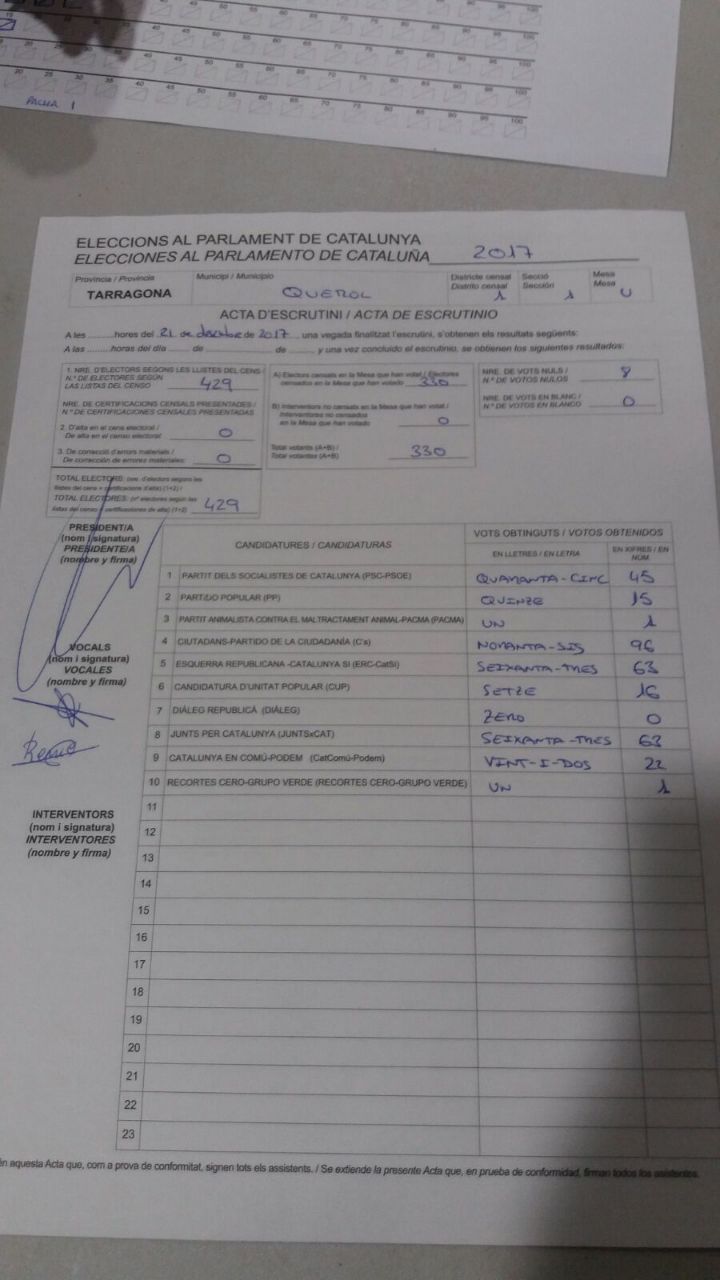 PACMA 1
ELECCIONS AL PARLAMENT DE CATALUNYA
ELECCIONES AL PARLAMENTO DE CATALUÑA 2017
Província / Provincia Municipi / Municipio Districte censal Secció Mesa
Distrito censal Sección Mesa
TARRAGONA QUEROL 1 1 U
ACTA D'ESCRUTINI / ACTA DE ESCRUTINIO
A les ........hores del 21 de desembre de 2017 , una vegada finalitzat l'escrutini, s'obtenen els resultats següents:
A las ........horas del día ...... de ............ de ...... y una vez concluido el escrutinio, se obtienen los siguientes resultados:
1. NRE. D'ELECTORS SEGONS LES LLISTES DEL CENS /
N.º DE ELECTORES SEGÚN
LAS LISTAS DEL CENSO 429
NRE. DE CERTIFICACIONS CENSALS PRESENTADES /
N.º DE CERTIFICACIONES CENSALES PRESENTADAS
2. D'alta en el cens electoral /
De alta en el censo electoral: 0
3. De correcció d'errors materials /
De corrección de errores materiales: 0
TOTAL ELECTORS: (nre. d'electors segons les
llistes del cens + certificacions d'alta) (1+2) /
TOTAL ELECTORES: (nº electores según las
listas del censo + certificaciones de alta) (1+2) 429
A) Electors censats en la Mesa que han votat / Electores
censados en la Mesa que han votado 330
B) Interventors no censats en la Mesa que han votat /
Interventores no censados
en la Mesa que han votado 0
Total votants (A+B) /
Total votantes (A+B) 330
NRE. DE VOTS NULS /
N.º DE VOTOS NULOS 8
NRE. DE VOTS EN BLANC /
N.º DE VOTOS EN BLANCO 0
PRESIDENT/A
(nom i signatura)
PRESIDENTE/A
(nombre y firma)
VOCALS
(nom i signatura)
VOCALES
(nombre y firma)
INTERVENTORS
(nom i signatura)
INTERVENTORES
(nombre y firma)
CANDIDATURES / CANDIDATURAS VOTS OBTINGUTS / VOTOS OBTENIDOS
EN LLETRES / EN LETRA EN XIFRES / EN NÚM.
1 PARTIT DELS SOCIALISTES DE CATALUNYA (PSC-PSOE) QUARANTA-CINC 45
2 PARTIDO POPULAR (PP) QUINZE 15
3 PARTIT ANIMALISTA CONTRA EL MALTRACTAMENT ANIMAL-PACMA (PACMA) UN 1
4 CIUTADANS-PARTIDO DE LA CIUDADANÍA (C's) NORANTA-SIS 96
5 ESQUERRA REPUBLICANA -CATALUNYA SI (ERC-CatSI) SEIXANTA-TRES 63
6 CANDIDATURA D'UNITAT POPULAR (CUP) SETZE 16
7 DIÀLEG REPUBLICÀ (DIÀLEG) ZERO 0
8 JUNTS PER CATALUNYA (JUNTSxCAT) SEIXANTA-TRES 63
9 CATALUNYA EN COMÚ-PODEM (CatComú-Podem) VINT-I-DOS 22
10 RECORTES CERO-GRUPO VERDE (RECORTES CERO-GRUPO VERDE) UN 1
11
12
13
14
15
16
17
18
19
20
21
22
23
én aquesta Acta que, com a prova de conformitat, signen tots els assistents. / Se extiende la presente Acta que, en prueba de conformidad, firman todos los asistentes.